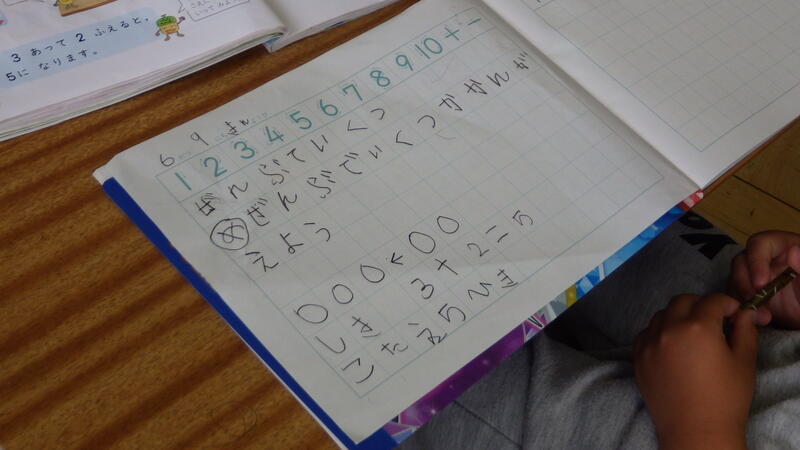 3 あって 2 ふえると，
5に なります。
6 9 きん
1 2 3 4 5 6 7 8 9 10 + −
ぜんぶでいくつ
めぜんぶでいくつかかんが
えよう
○○○←○○
しき 3+2=5
こたえ5ひき